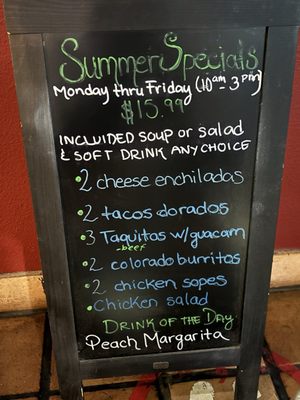 Summer Specials
Monday thru Friday (10am - 3pm)
$15.99
INCLUDED SOUP or SALAD
& SOFT DRINK ANY CHOICE
• 2 cheese enchiladas
• 2 tacos dorados
• 3 Taquitos w/guacam
-beef
• 2 colorado burritos
• 2 chicken sopes
• Chicken salad
DRINK OF THE DAY:
Peach Margarita